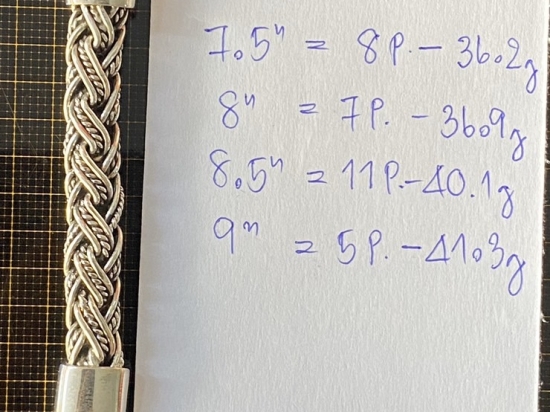 7.5" = 8P. - 36.2g
8" = 7P. - 36.9g
8.5" = 11P. - 40.1g
9" = 5P. - 41.3g